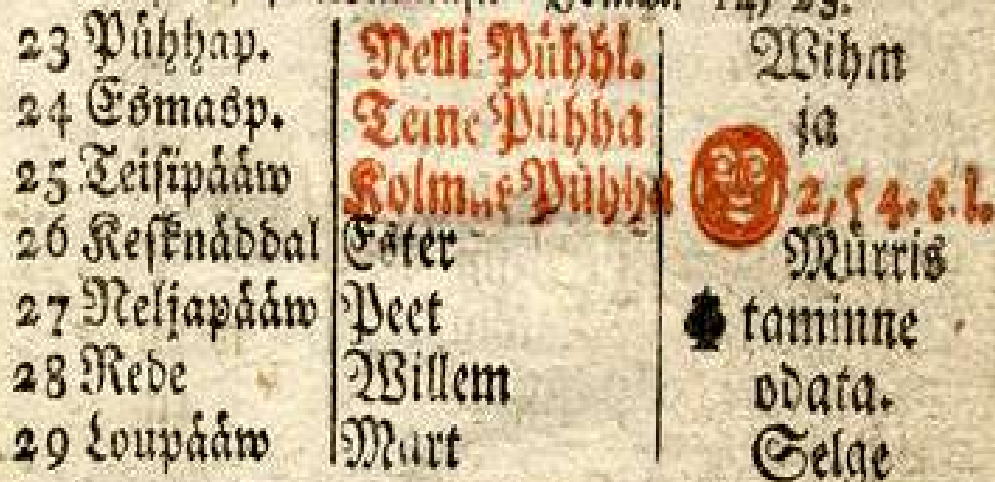 23 Pühhap. Nelli Pühhl. Wihm
24 Esmasp. Teine Pühha ja
25 Teisipääw Kolmas Pühha 2, 54. e. l.
26 Keſknäddal Eſter Mürris
27 Neljapääw Peet taminne
28 Rede Willem odata.
29 Loupääw Mart Selge